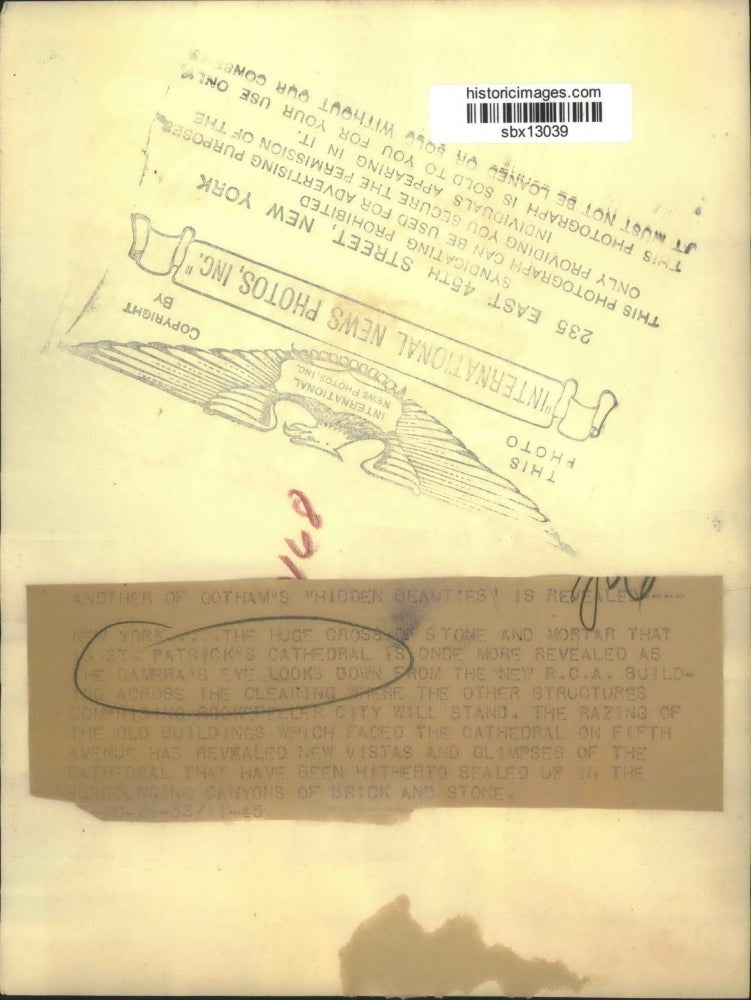 historicimages.com
sbx13039
THIS
PHOTO
INTERNATIONAL
NEWS PHOTOS, INC.
COPYRIGHT
BY
"INTERNATIONAL NEWS PHOTOS, INC."
235 EAST 45TH STREET, NEW YORK
SYNDICATING PROHIBITED
THIS PHOTOGRAPH CAN BE USED FOR ADVERTISING PURPOSES
ONLY PROVIDING YOU SECURE THE PERMISSION OF THE
INDIVIDUALS APPEARING IN IT.
THIS PHOTOGRAPH IS SOLD TO YOU FOR YOUR USE ONLY
IT MUST NOT BE LOANED OR SOLD WITHOUT OUR CONSENT
168
ANOTHER OF GOTHAM'S "HIDDEN BEAUTIES" IS REVEALED
NEW YORK ....THE HUGE CROSS OF STONE AND MORTAR THAT
IS ST. PATRICK'S CATHEDRAL IS ONCE MORE REVEALED AS
THE CAMERA'S EYE LOOKS DOWN FROM THE NEW R.C.A. BUILD-
ING ACROSS THE CLEARING WHERE THE OTHER STRUCTURES
COMPRISING ROCKEFELLER CITY WILL STAND. THE RAZING OF
THE OLD BUILDINGS WHICH FACED THE CATHEDRAL ON FIFTH
AVENUE HAS REVEALED NEW VISTAS AND GLIMPSES OF THE
CATHEDRAL THAT HAVE BEEN HITHERTO SEALED UP IN THE
SURROUNDING CANYONS OF BRICK AND STONE.